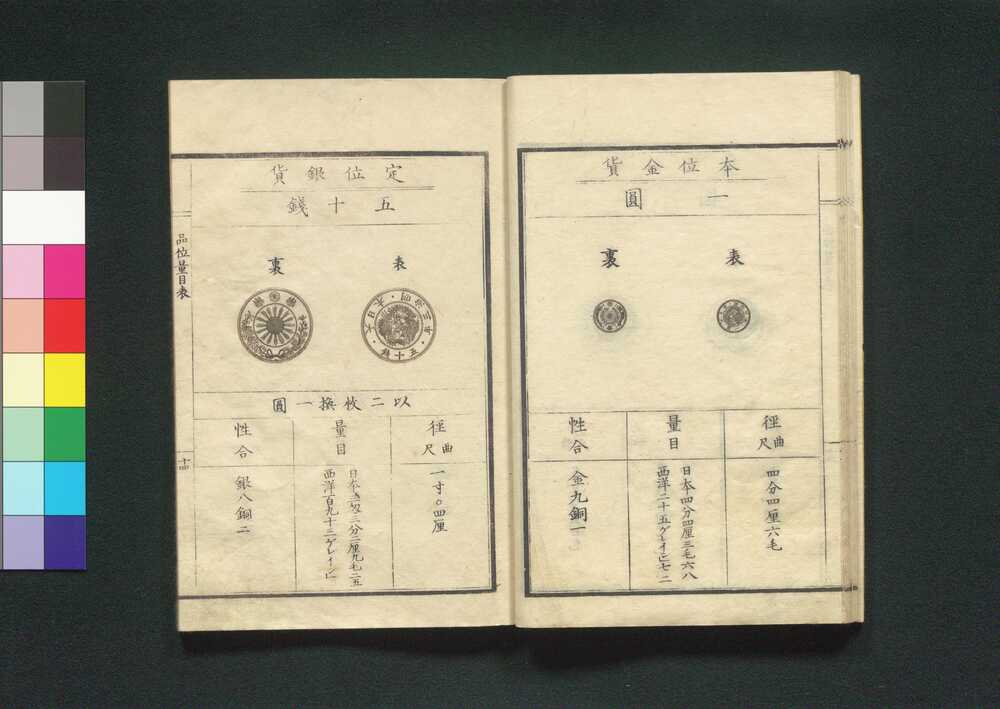 本位金貨
一圓
表
裏
徑 曲尺
四分四厘六毛
量目
日本四分四厘三毛六八
西洋二十五ゲレイン七二
性合
金九銅一
定位銀貨
五十錢
表
裏
大日本・明治三年・
五十錢
以二枚換一圓
徑 曲尺
一寸〇四厘
量目
日本三匁三分三厘九毛二五
西洋百九十三ゲレイン
性合
銀八銅二
品位量目表
十四